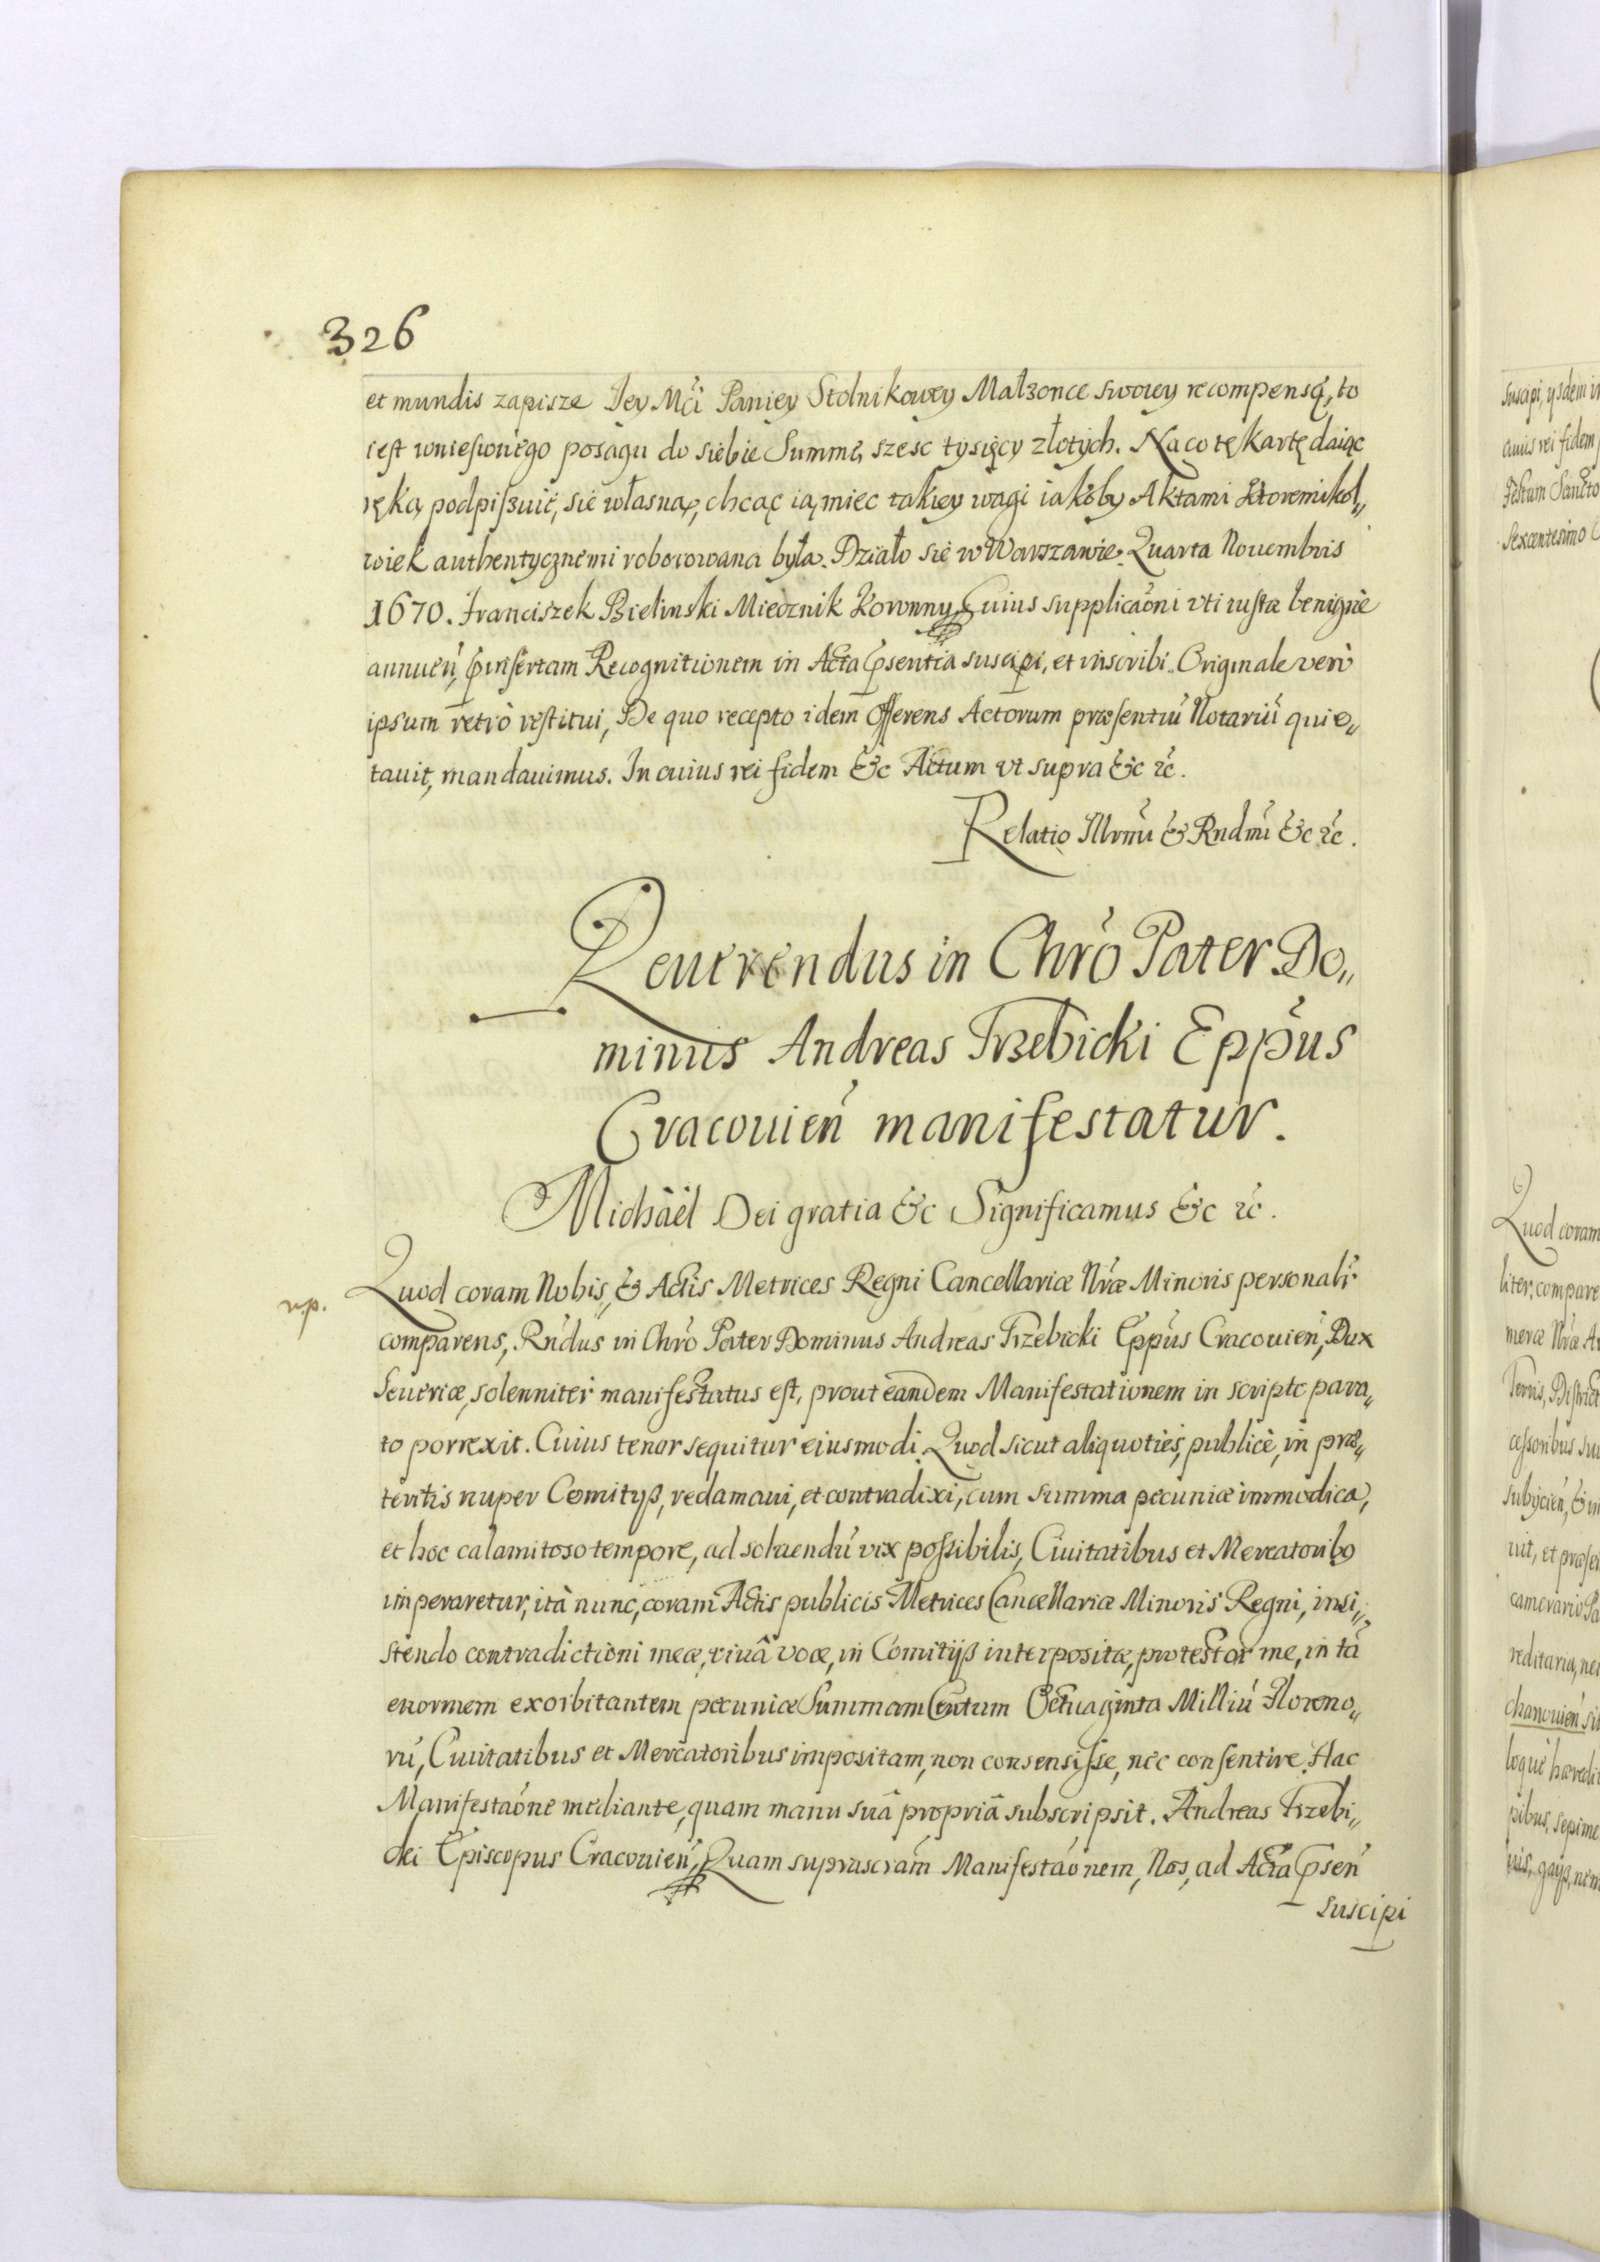 326
et mundis zapisze Jey Mći Paniey Stolnikowey Małzonce swoiey recompensą, to
iest wniesionego posagu do siebie Summę szesc tysięcy złotych. Na co tę kartę daiąc
ręką podpiszuię się własną, chcąc ią miec takiey wagi iakoby Aktami ktoremikol„
wiek authentycznemi roborowana była. Działo się w Warszawie. Quarta Nouembris
1670. Franciszek Bielinski Miecznik Koronny, Cuius supplicaoni vti iustæ benigne
annuen, pinsertam Recognitionem in Acta psentia suscipi, et inscribi. Originale vero
ipsum retro restitui, De quo recepto idem Offerens Actorum præsentiu Notariu quie„
tauit, mandauimus. In cuius rei fidem &c Actum vt supra &c ꝛc.
Relatio Illrmi & Rndmi &c ꝛc.
Reuerendus in Chro Pater Do„
minus Andreas Trzebicki Eppus
Cracouien manifestatur.
Michäel Dei gratia &c Significamus &c ꝛc.
Quod coram Nobis, & Actis Metrices Regni Cancellariæ Nræ Minoris personalr
comparens, Rndus in Chro Pater Dominus Andreas Trzebicki Eppus Cracouien, Dux
Seueriæ, solenniter manifestatus est, prout eandem Manifestationem in scripto para„
to porrexit. Cuius tenor sequitur eiusmodi. Quod sicut aliquoties, publice, in præ„
teritis nuper Comitijs, reclamaui, et contradixi, cum summa pecuniæ immodica,
et hoc calamitoso tempore, ad soluendu vix possibilis, Ciuitatibus et Mercatoribꝰ
imperaretur, ità nunc, coram Actis publicis Metrices Cancellariæ Minoris Regni, insi„
stendo contradictioni meæ, viuâ voce, in Comitijs interpositæ, protestor me, in ta
enormem exorbitantem pecuniæ Summam Centum Octuaginta Milliu Floreno„
ru, Ciuitatibus et Mercatoribus impositam, non consensisse, nec consentire. Hac
Manifestaone mediante, quam manu suâ propriâ subscripsit. Andreas Trzebi„
cki Episcopus Cracouien, Quam suprascram Manifestaonem, Nos, ad Acta psen
suscipi